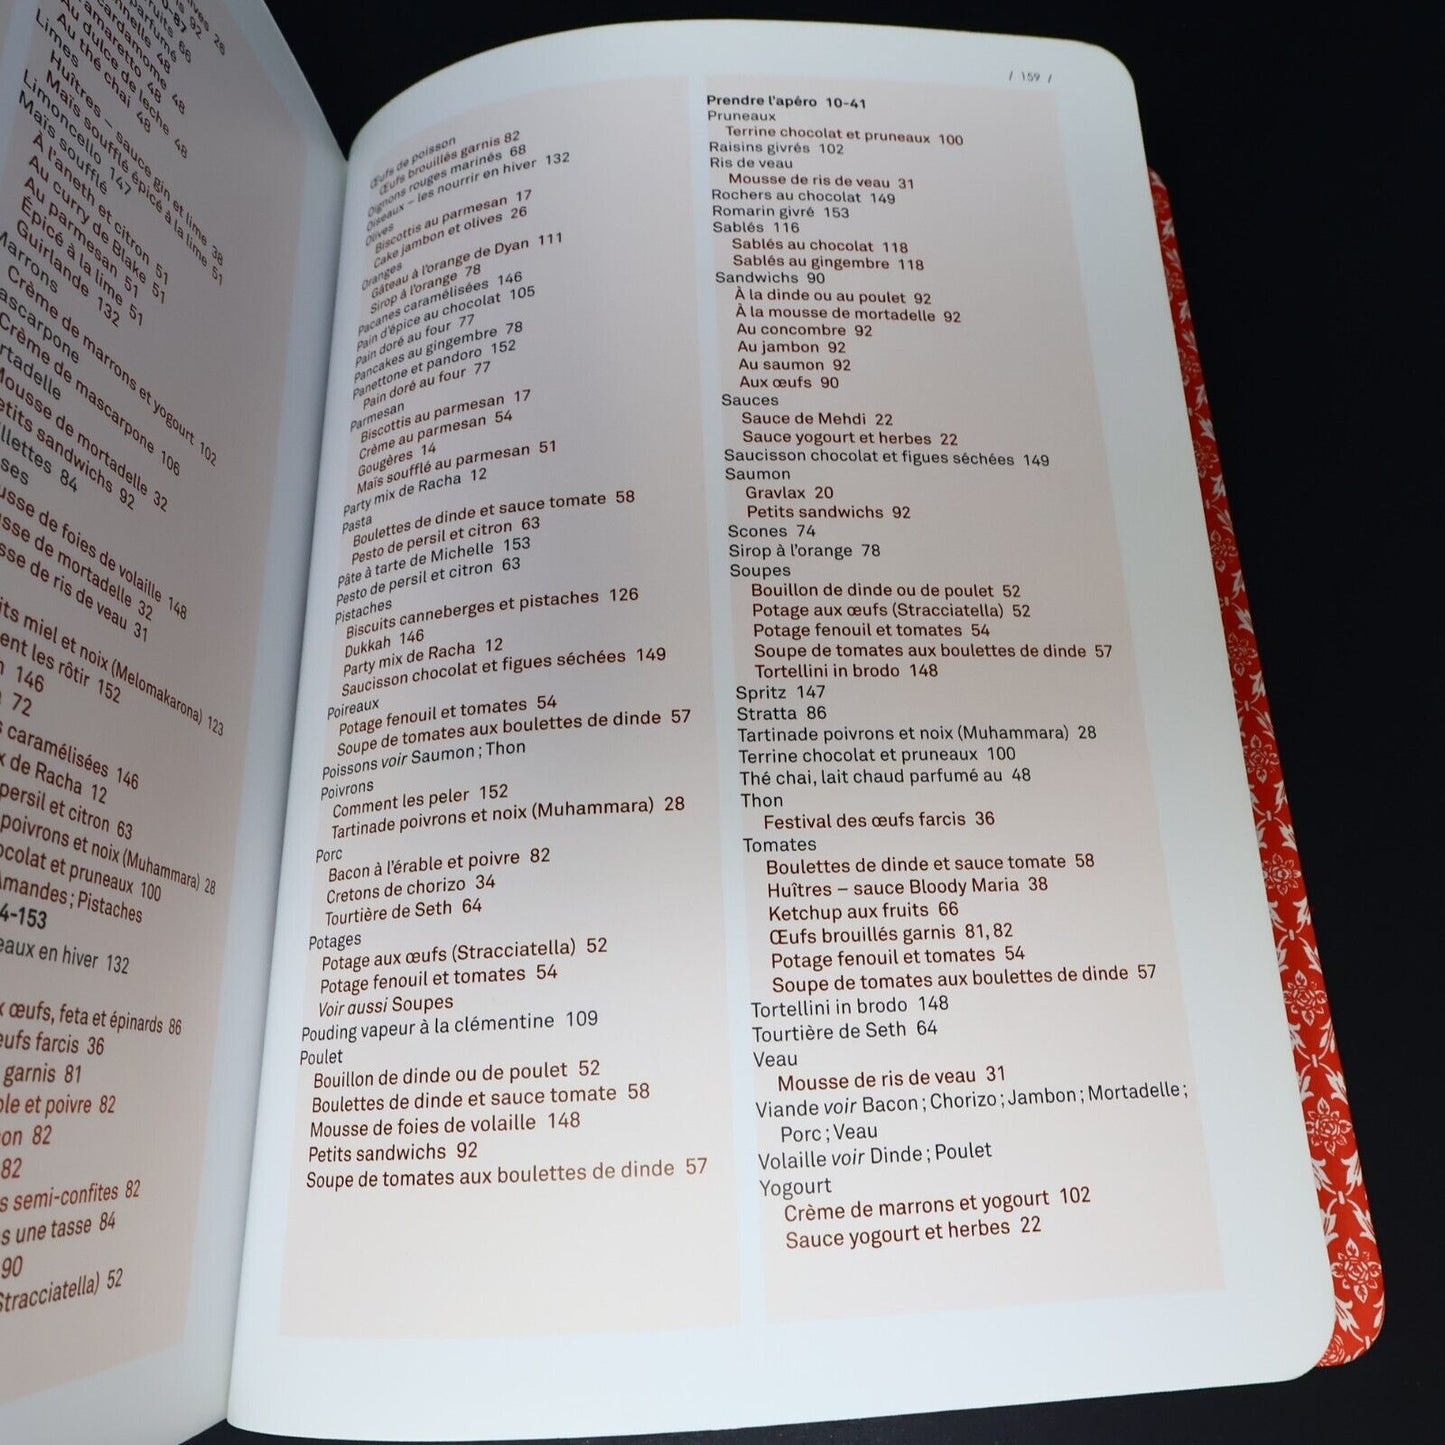 28
Au amaretto 48
Au dulce de leche 48
Au thé chai 48
Limes
Huîtres – sauce gin et lime 38
Maïs soufflé épicé à la lime 51
Limoncello 147
Maïs soufflé
À l'aneth et citron 51
Au curry de Blake 51
Au parmesan 51
Épicé à la lime 51
Guirlande 132
Marrons
Crème de marrons et yogourt 102
Crème de mascarpone 106
Mousse de mortadelle 32
Petits sandwichs 92
84
148
32
de ris de veau 31
miel et noix (Melomakarona) 123
les rôtir 152
146
72
caramélisées 146
de Racha 12
persil et citron 63
poivrons et noix (Muhammara) 28
et pruneaux 100
Amandes ; Pistaches
-153
en hiver 132
œufs, feta et épinards 86
farcis 36
garnis 81
et poivre 82
82
82
semi-confites 82
une tasse 84
90
(Stracciatella) 52
/ 159 /
Œufs de poisson
Œufs brouillés garnis 82
Oignons rouges marinés 68
Oiseaux – les nourrir en hiver 132
Olives
Biscottis au parmesan 17
Cake jambon et olives 26
Oranges
Gâteau à l'orange de Dyan 111
Sirop à l'orange 78
Pacanes caramélisées 146
Pain d'épice au chocolat 105
Pain doré au four 77
Pancakes au gingembre 78
Panettone et pandoro 152
Pain doré au four 77
Parmesan
Biscottis au parmesan 17
Crème au parmesan 54
Gougères 14
Maïs soufflé au parmesan 51
Party mix de Racha 12
Pasta
Boulettes de dinde et sauce tomate 58
Pesto de persil et citron 63
Pâte à tarte de Michelle 153
Pesto de persil et citron 63
Pistaches
Biscuits canneberges et pistaches 126
Dukkah 146
Party mix de Racha 12
Saucisson chocolat et figues séchées 149
Poireaux
Potage fenouil et tomates 54
Soupe de tomates aux boulettes de dinde 57
Poissons voir Saumon ; Thon
Poivrons
Comment les peler 152
Tartinade poivrons et noix (Muhammara) 28
Porc
Bacon à l'érable et poivre 82
Cretons de chorizo 34
Tourtière de Seth 64
Potages
Potage aux œufs (Stracciatella) 52
Potage fenouil et tomates 54
Voir aussi Soupes
Pouding vapeur à la clémentine 109
Poulet
Bouillon de dinde ou de poulet 52
Boulettes de dinde et sauce tomate 58
Mousse de foies de volaille 148
Petits sandwichs 92
Soupe de tomates aux boulettes de dinde 57
Prendre l'apéro 10-41
Pruneaux
Terrine chocolat et pruneaux 100
Raisins givrés 102
Ris de veau
Mousse de ris de veau 31
Rochers au chocolat 149
Romarin givré 153
Sablés 116
Sablés au chocolat 118
Sablés au gingembre 118
Sandwichs 90
À la dinde ou au poulet 92
À la mousse de mortadelle 92
Au concombre 92
Au jambon 92
Au saumon 92
Aux œufs 90
Sauces
Sauce de Mehdi 22
Sauce yogourt et herbes 22
Saucisson chocolat et figues séchées 149
Saumon
Gravlax 20
Petits sandwichs 92
Scones 74
Sirop à l'orange 78
Soupes
Bouillon de dinde ou de poulet 52
Potage aux œufs (Stracciatella) 52
Potage fenouil et tomates 54
Soupe de tomates aux boulettes de dinde 57
Tortellini in brodo 148
Spritz 147
Stratta 86
Tartinade poivrons et noix (Muhammara) 28
Terrine chocolat et pruneaux 100
Thé chai, lait chaud parfumé au 48
Thon
Festival des œufs farcis 36
Tomates
Boulettes de dinde et sauce tomate 58
Huîtres – sauce Bloody Maria 38
Ketchup aux fruits 66
Œufs brouillés garnis 81, 82
Potage fenouil et tomates 54
Soupe de tomates aux boulettes de dinde 57
Tortellini in brodo 148
Tourtière de Seth 64
Veau
Mousse de ris de veau 31
Viande voir Bacon ; Chorizo ; Jambon ; Mortadelle ;
Porc ; Veau
Volaille voir Dinde ; Poulet
Yogourt
Crème de marrons et yogourt 102
Sauce yogourt et herbes 22